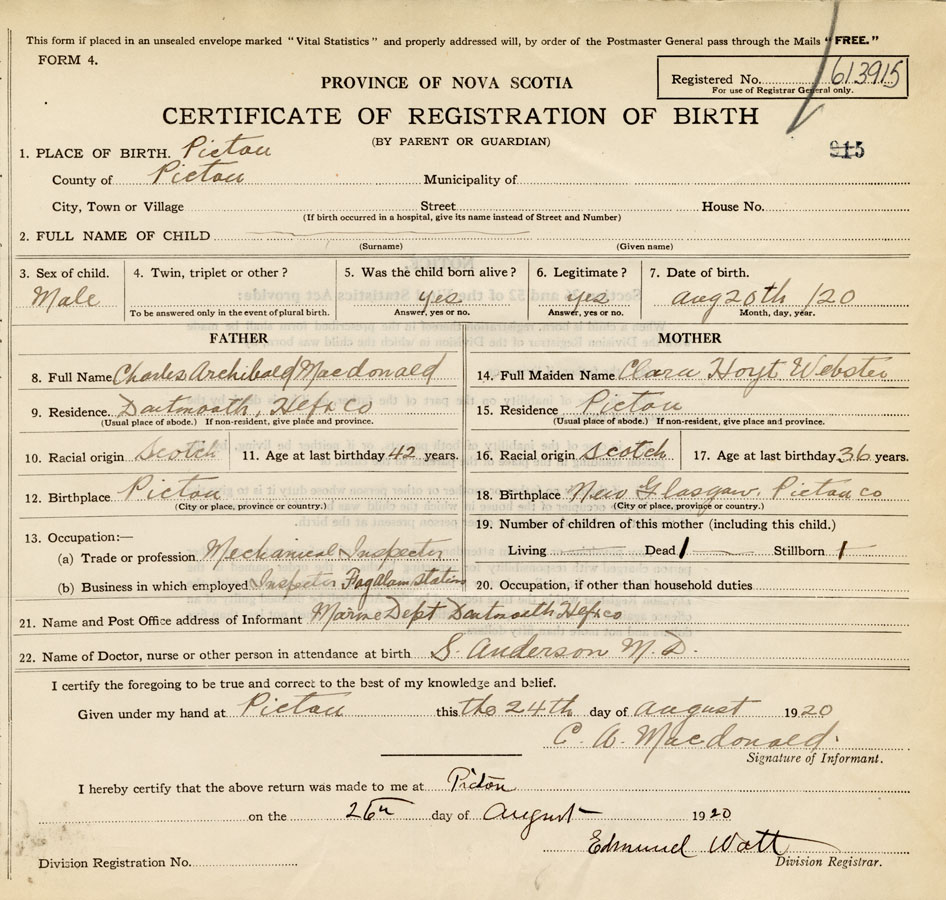 This form if placed in an unsealed envelope marked "Vital Statistics" and properly addressed will, by order of the Postmaster General pass through the Mails "FREE."
FORM 4.
Registered No. 613915
For use of Registrar General only.
PROVINCE OF NOVA SCOTIA
CERTIFICATE OF REGISTRATION OF BIRTH
(BY PARENT OR GUARDIAN)
915
1. PLACE OF BIRTH. Pictou
County of Pictou Municipality of
City, Town or Village Street House No.
(If birth occurred in a hospital, give its name instead of Street and Number)
2. FULL NAME OF CHILD
(Surname) (Given name)
3. Sex of child. 4. Twin, triplet or other? 5. Was the child born alive? 6. Legitimate? 7. Date of birth.
Male yes yes Aug 20th /20
To be answered only in the event of plural birth. Answer, yes or no. Answer, yes or no. Month, day, year.
FATHER MOTHER
8. Full Name Charles Archibald Macdonald 14. Full Maiden Name Clara Hoyt Webster
9. Residence Dartmouth, Hfx Co 15. Residence Pictou
(Usual place of abode.) If non-resident, give place and province. (Usual place of abode.) If non-resident, give place and province.
10. Racial origin Scotch 11. Age at last birthday 42 years. 16. Racial origin Scotch 17. Age at last birthday 36 years.
12. Birthplace Pictou 18. Birthplace New Glasgow, Pictou co
(City or place, province or country.) (City or place, province or country.)
13. Occupation:— 19. Number of children of this mother (including this child.)
(a) Trade or profession Mechanical Inspector Living Dead 1 Stillborn 1
(b) Business in which employed Inspector Fog alarm stations 20. Occupation, if other than household duties
21. Name and Post Office address of Informant Marine Dept Dartmouth Hfx co
22. Name of Doctor, nurse or other person in attendance at birth S. Anderson M.D.
I certify the foregoing to be true and correct to the best of my knowledge and belief.
Given under my hand at Pictou this the 24th day of August 1920
C. A. Macdonald.
Signature of Informant.
I hereby certify that the above return was made to me at Pictou
on the 26th day of August 1920
Edmund Watt
Division Registration No. Division Registrar.